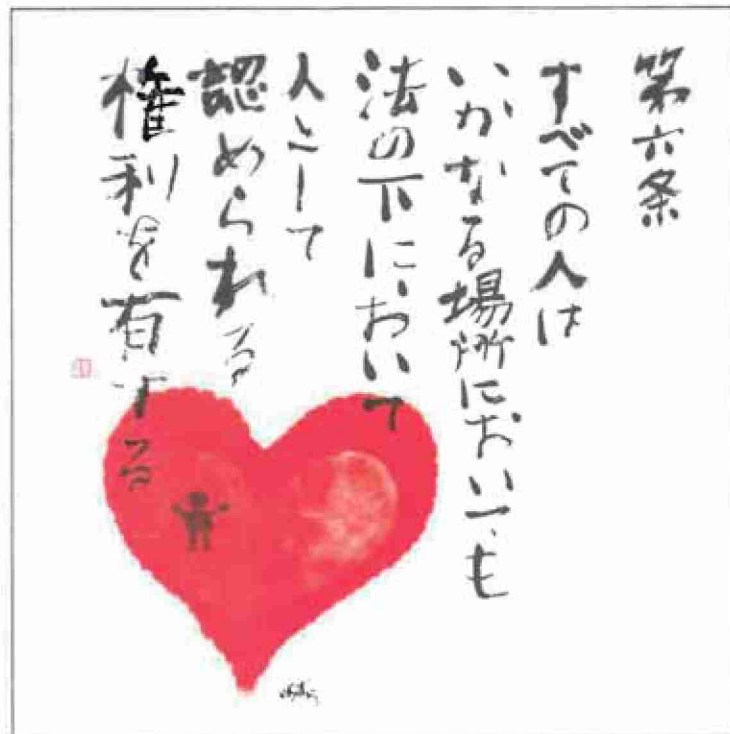 第六条
すべての人は
いかなる場所においても
法の下において
人として
認められる
権利を有する